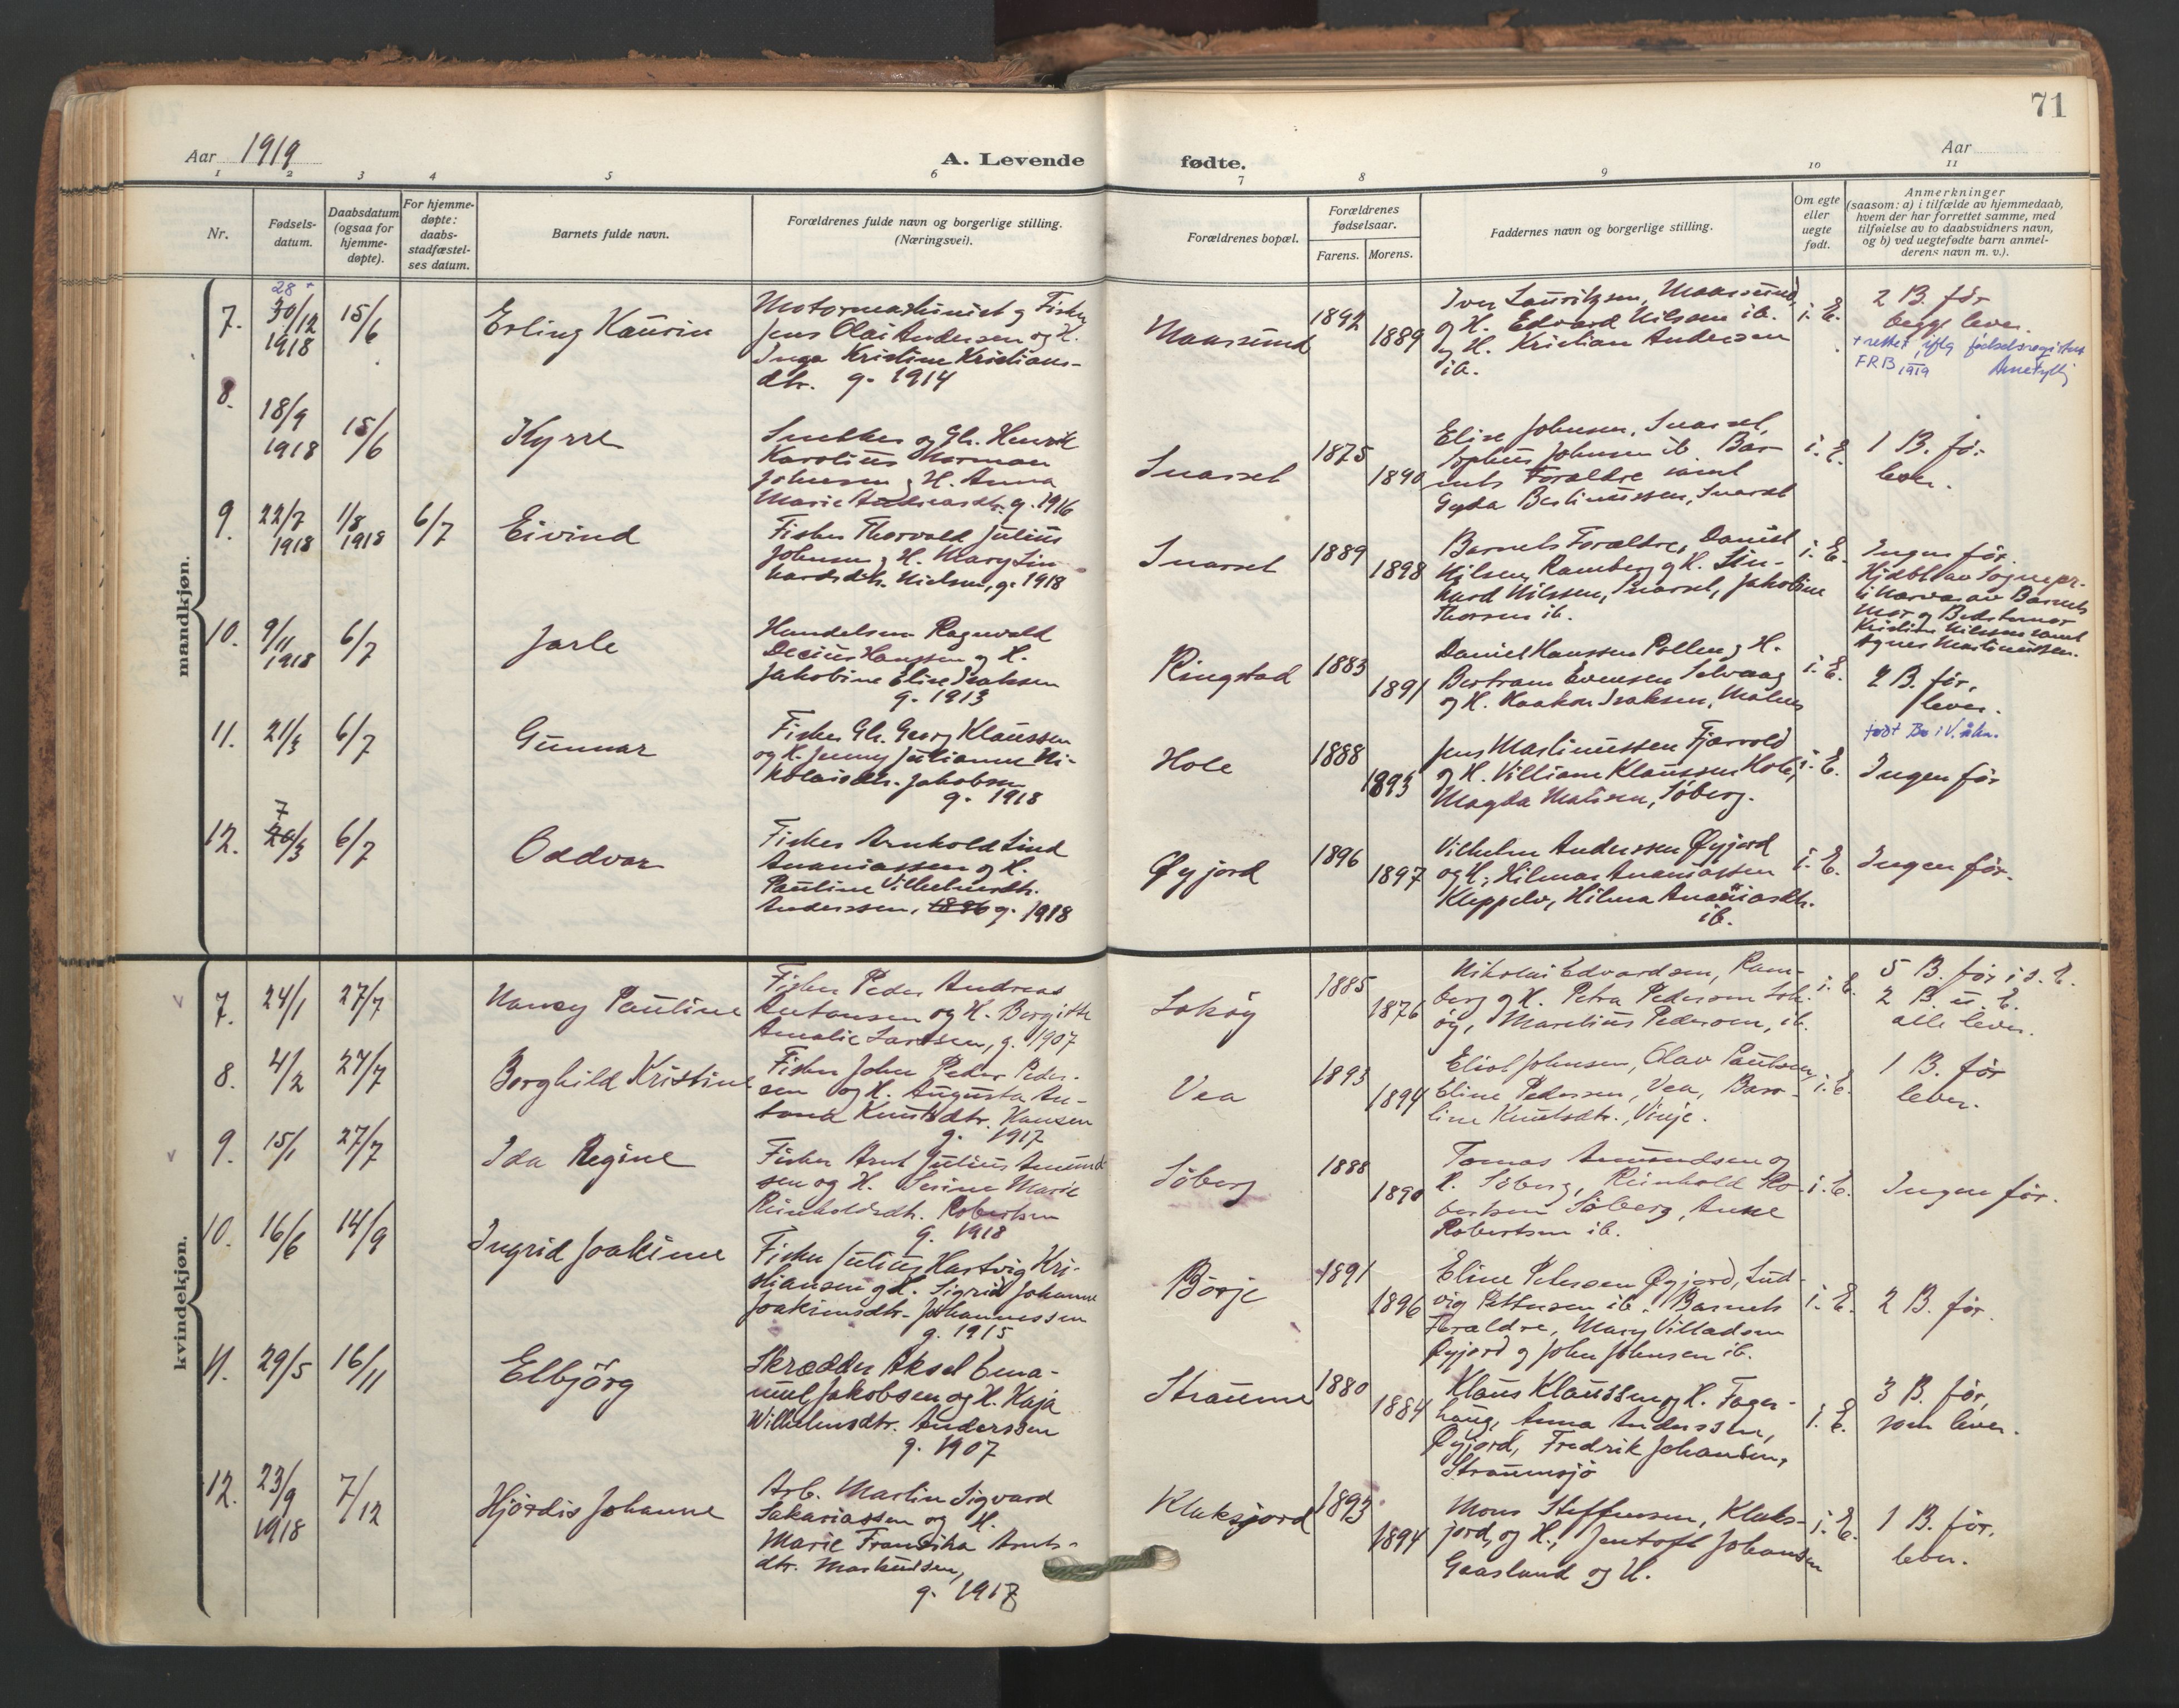 71
Aar 1919
A. Levende fødte.
Aar
1 2 3 4 5 6 7 8 9 10 11
Nr.
Fødsels-
datum.
Daabsdatum
(ogsaa for
hjemme-
døpte).
For hjemme-
døpte:
daabs-
stadfæstel-
ses datum.
Barnets fulde navn.
Forældrenes fulde navn og borgerlige stilling.
(Næringsvei).
Forældrenes bopæl.
Forældrenes
fødselsaar.
Farens. Morens.
Faddernes navn og borgerlige stilling.
Om egte
eller
uegte
født.
Anmerkninger
(saasom: a) i tilfælde av hjemmedaab,
hvem der har forrettet samme, med
tilføielse av to daabsvidners navn,
og b) ved uegtefødte barn anmel-
derens navn m. v.).
mandkjøn.
7.
28 +
30/12
1918
15/6
Erling Kaurin
Motormaskinist og Fisker
Jens Olai Andersen og H.
Inga Kristine Kristians-
dtr. g. 1914
Maasund
1892
1889
Iver Lauritzen, Maasund,
og H. Edvard Nilssen ib.
og H. Kristian Andersen
ib.
i. E.
2 B. før
begge lever.
+ rettet iflg fødselsregister
FRB 1919
8.
18/9
1918
15/6
Kyrre
Snekker og Gb. Henrik
Karolius Norman
Johnsen og H. Anna
Marie Andreasdtr. g. 1916
Snarset
1875
1890
Elise Johnsen, Snarset,
Sophus Johnsen ib. Bar-
nets Forældre samt
Gyda Bertinussen, Snarset
i. E.
1 B. før
lever.
9.
22/7
1918
1/8
1918
6/7
Eivind
Fisker Thorvald Julius
Johnsen og H. Mary Lin-
hardsdtr. Nielsen, g. 1918
Snarset
1889
1898
Barnets Forældre, Daniel
Nilsen, Ramberg og H. Lin-
hard Nilssen, Snarset, Jakobine
Thorsen ib.
i. E.
Ingen før.
Hjdbt. av Sognepr.
i Nærvær av Barnets
Mor og Bedstemor
Kristine Nilssen samt
Agnes Martinussen.
10.
9/11
1918
6/7
Jarle
Handelsm. Ragnvald
Decius Hanssen og H.
Jakobine Elise Isaksen
g. 1913
Ringstad
1883
1891
Daniel Hanssen Pollen og H.
Bertram Evensen Selvaag
og H. Haakon Isaksen, Malnes
i. E.
2 B. før,
lever.
født Bø i V.ålen.
11.
21/3
6/7
Gunnar
Fisker Gb. Georg Klaussen
og H. Jenny Julianne Ni-
kolaisdtr. Jakobsen
g. 1918
Hole
1888
1893
Jens Martinussen Fjærvold
og H. Villiam Klaussen Hole,
Magda Matisen, Søberg.
i. E.
Ingen før
12.
7
20/3
6/7
Oddvar
Fisker Arnhold Lind
Ananiassen og H.
Pauline Vilhelmsdtr.
Anderssen, 1896 g. 1918
Øyjord
1896
1897
Vilhelm Anderssen Øyjord
og H., Hilmar Ananiassen
Kleppelv, Hilma Ananiasdtr.
ib.
i. E.
Ingen før.
kvindekjøn.
7.
24/1
27/7
Nancy Pauline
Fisker Peder Andreas
Antonsen og H. Bergitte
Amalie Larssen, g. 1907
Sokøy
1885
1876
Nikolai Edvardsen, Ram-
berg og H. Petra Pedersen Sok-
øy, Marelius Pedersen, ib.
i. E.
5 B. før i s. E.
2 B. u. E.
alle lever.
8.
4/2
27/7
Borghild Kristine
Fisker John Peder Peder-
sen og H. Augusta An-
tona Knutsdtr. Hansen
g. 1917
Vea
1893
1894
Eliot Johnsen, Olav Paulsen,
Eline Pedersen, Vea, Baro-
line Knutsdtr., Vinje.
i. E.
1 B. før
lever.
9.
15/1
27/7
Ida Regine
Fisker Arnt Julius Amund-
sen og H. Serine Marie
Reinholdsdtr. Robertsen
g. 1918
Søberg
1888
1890
Tomas Amundsen og
H. Søberg, Reinhold Ro-
bertsen Søberg, Anne
Robertsen ib.
i. E.
Ingen før.
10.
16/6
14/9
Ingrid Joakime
Fisker Julius Hartvig Kri-
stiansen og H. Sigrid Johanne
Joakimsdtr. Johannessen
g. 1915
Børje
1891
1896
Eline Petersen Øyjord, Lud-
vig Pettersen ib. Barnets
Forældre, Mary Villadsen
Øyjord og John Johnsen ib.
i. E.
2 B. før.
11.
29/5
16/11
Elbjörg
Skrædder Aksel Ema-
nuel Jakobsen og H. Kaja
Wilhelmsdtr. Anderssen
g. 1907
Straume
1880
1884
Klaus Klaussen og H. Fager-
haug, Anna Anderssen,
Øyjord, Fredrik Johansen,
Straumsjø
i. E.
3 B. før,
som lever.
12.
23/9
1918
7/12
Hjördis Johanne
Arb. Martin Sigvard
Sakariassen og H.
Marie Fransiska Arnts-
dtr. Markussen,
g. 1917
Kluksjord
1893
1894
Mons Steffensen, Kluks-
jord, og H., Jentoft Johansen
Gaasland og H.
i. E.
1 B. før.
lever.